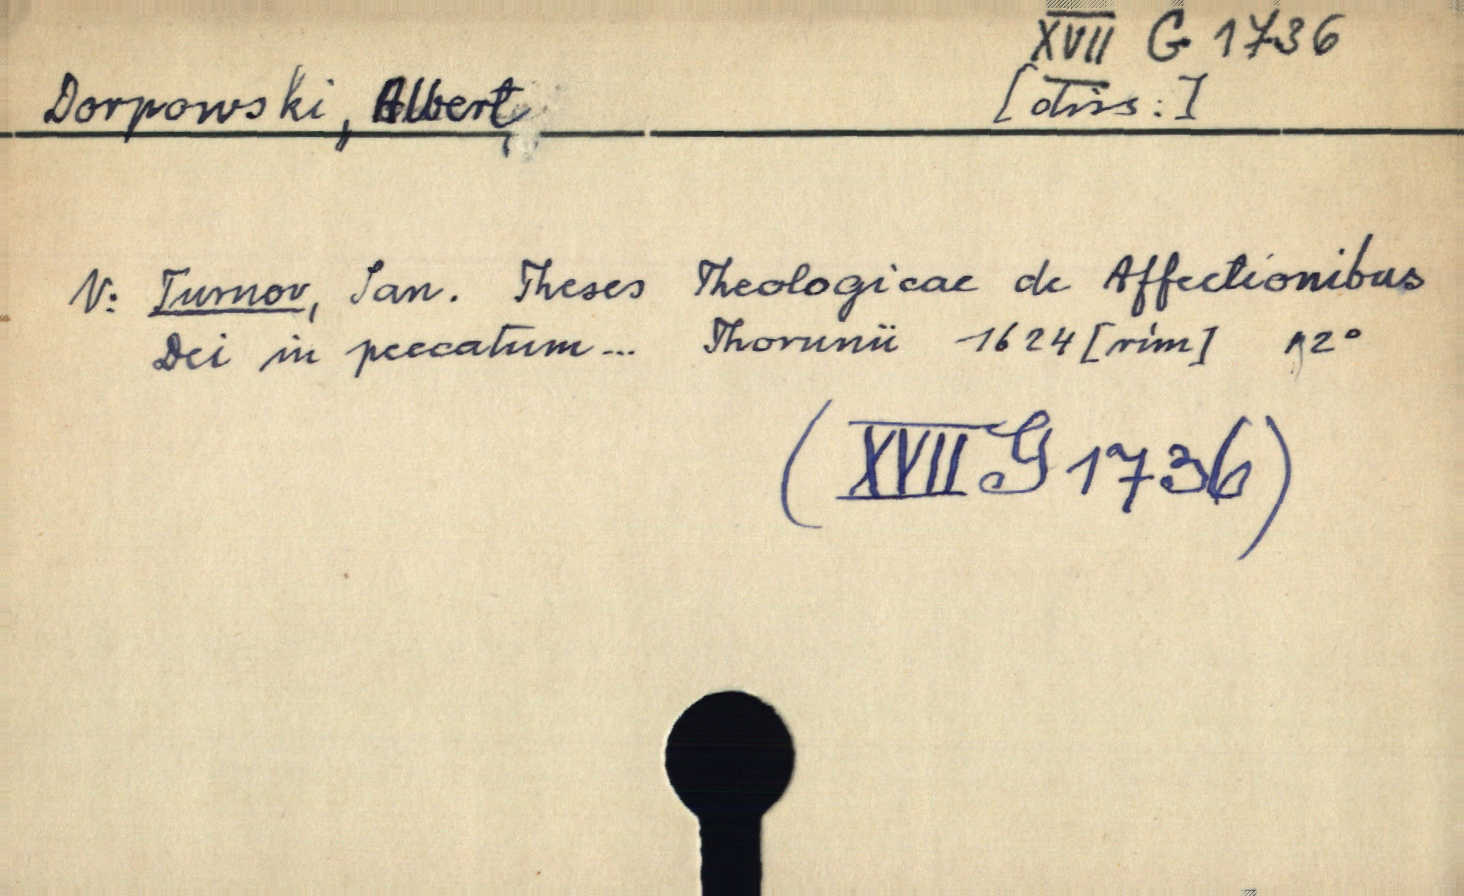 XVII G 1736
Dorpowski, Albert,
[diss:]
V: Turnov, Jan. Theses Theologicae de Affectionibus
Dei in peccatum... Thorunii 1624 [rim] 12°
(XVII G 1736)